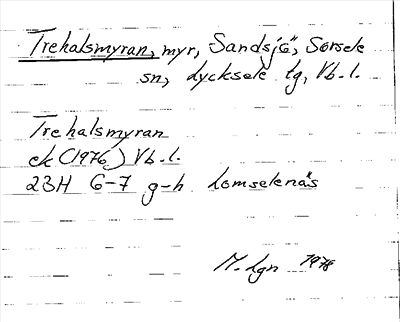 Trehalsmyran, myr, Sandsjö, Sorsele
sn, Lycksele lg, Vb. l.
Trehalsmyran
ek (1976) Vb. l.
23H 6-7 g-h Lomselenäs
M. Lgn 1978